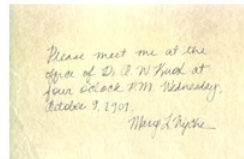 Please meet me at the
office of Dr A. W. at
four Oclock P.M. Wednesday,
October 9, 1901.
Mary L